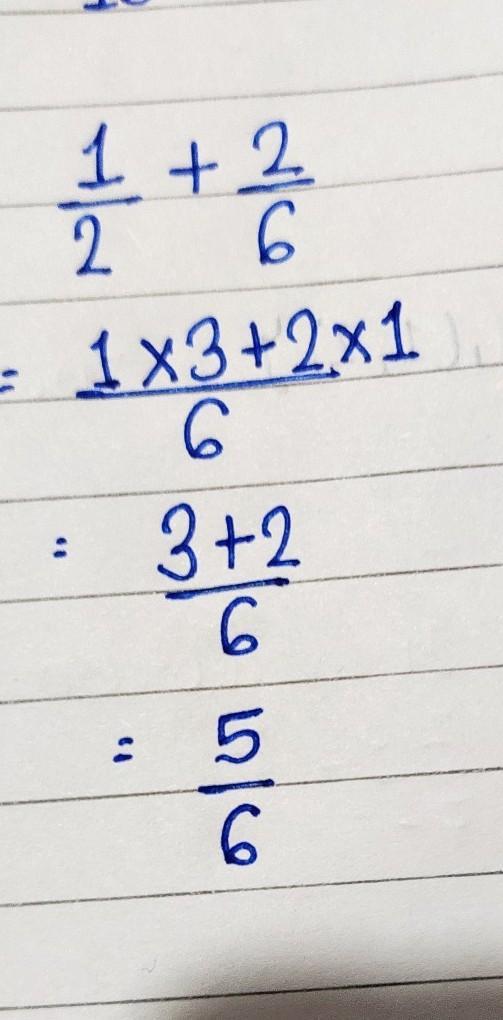 1/2 + 2/6
= 1×3+2×1/6
= 3+2/6
= 5/6